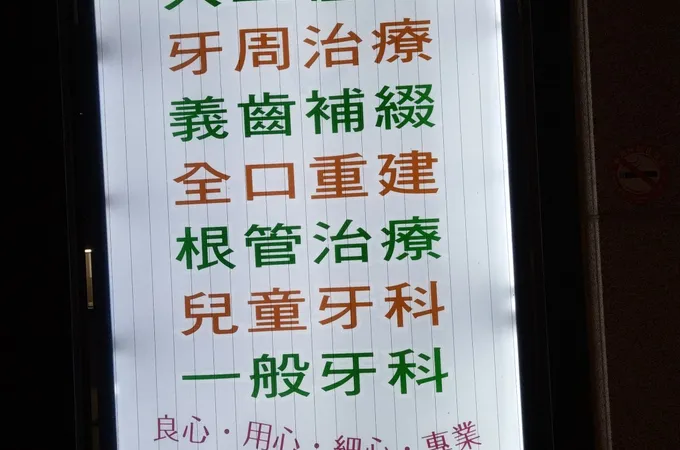 牙周治療
義齒補綴
全口重建
根管治療
兒童牙科
一般牙科
良心・用心・細心・專業